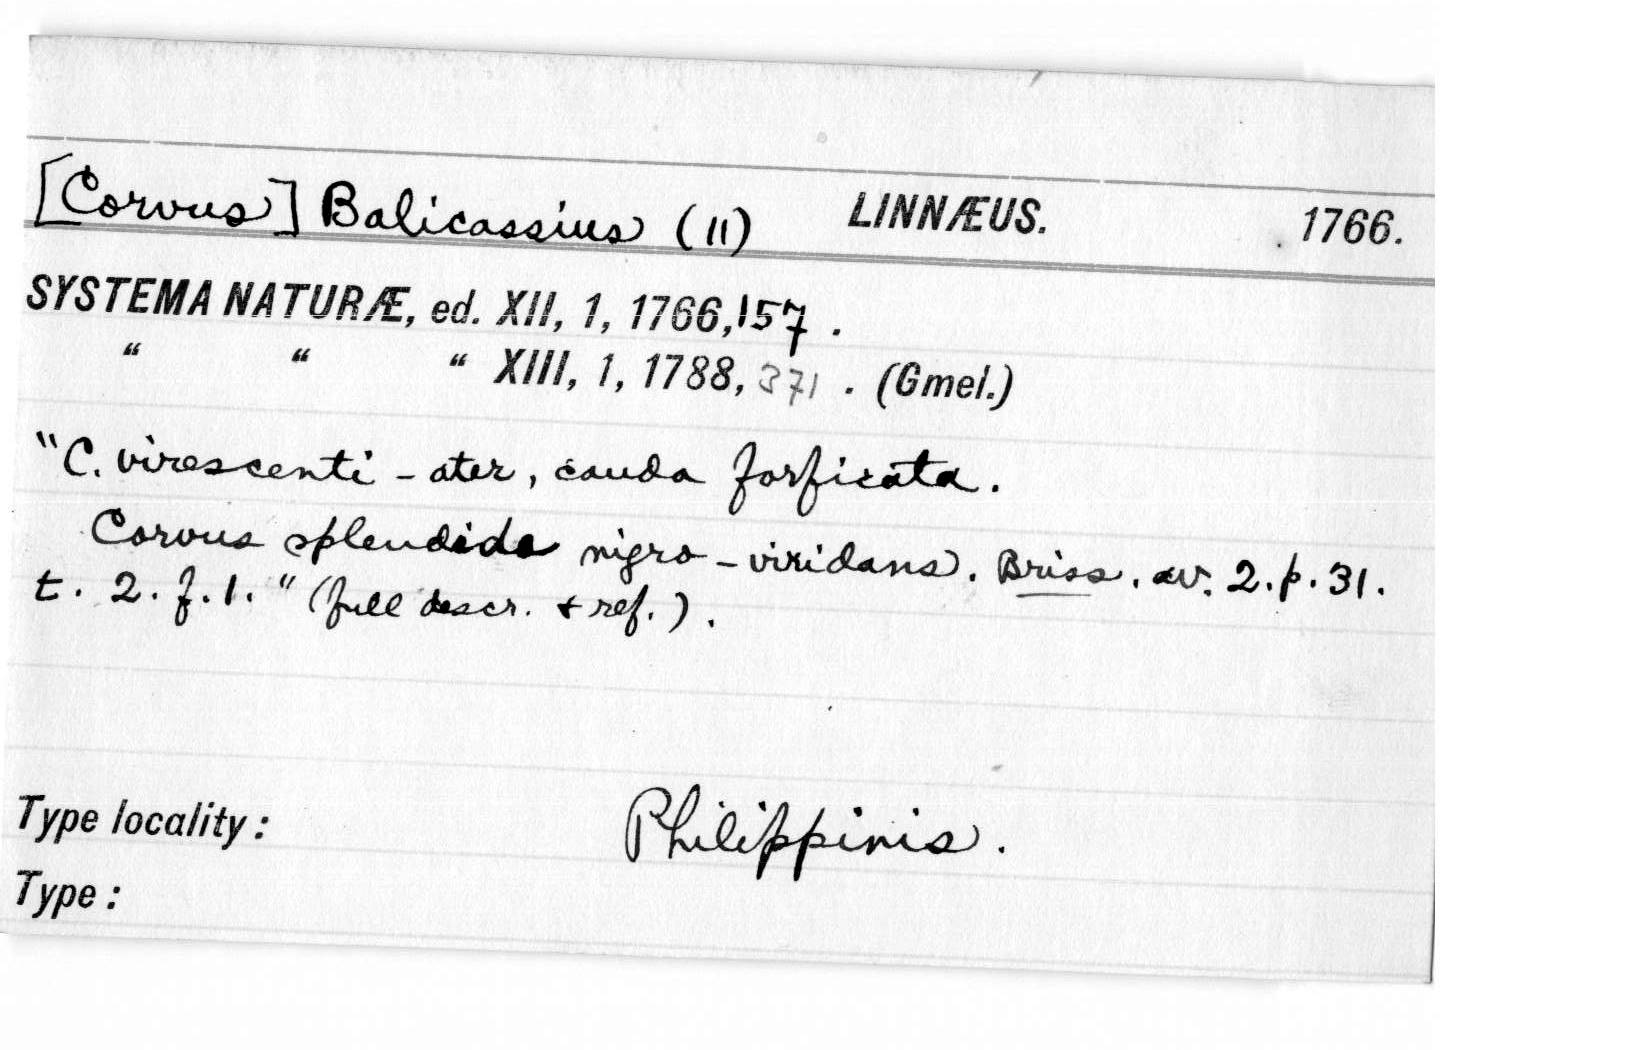 [Corvus] Balicassius (11) LINNÆUS. 1766.
SYSTEMA NATURÆ, ed. XII, 1, 1766, 157 .
“ “ “ XIII, 1, 1788, 371 . (Gmel.)
"C. virescenti - ater, cauda forficata.
Corvus splendide nigro - viridans. Briss. av. 2. p. 31.
t. 2. f. 1. " (full descr. + ref.) .
Type locality : Philippinis .
Type :